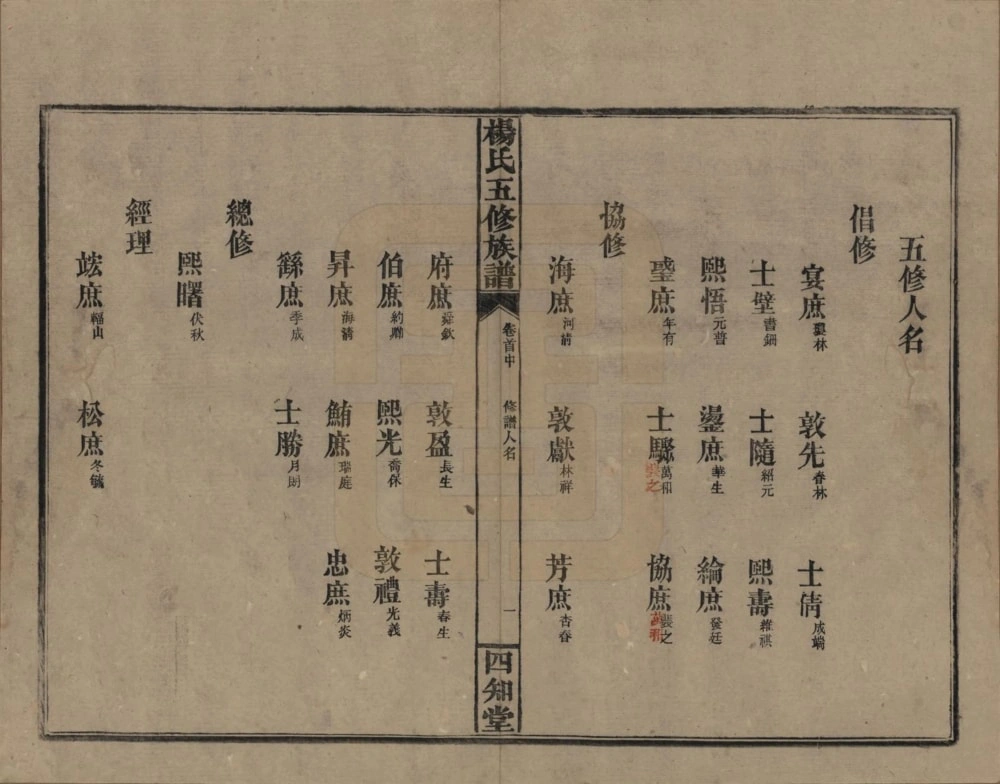 五修人名
倡修
宴庶 林 敦先 春林 士倩 成端
士壁 書錦 士隨 紹元 熙壽 祺
熙悟 元普 庶 華生 綸庶 發廷
協修
盛庶 年有 士驟 萬和 協庶 裴之
海庶 河清 敦獻 林祥 芳庶 杏春
楊氏五修族譜 卷首中 修譜人名 一 四知堂
府庶 舜欽 敦盈 長生 士壽 春生
伯庶 約聯 熙光 喬保 敦禮 光義
昇庶 海清 鮪庶 瑞庭 忠庶 炳炎
繇庶 季成 士勝 月朗
總修
熙曙 伏秋
經理
竑庶 福山 松庶 冬毓